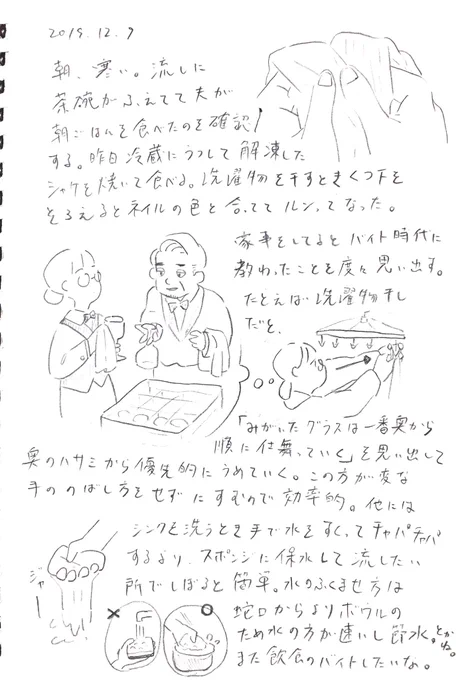 2019.12.9
朝、寒い。流しに
茶碗がふえてて夫が
朝ごはんを食べたのを確認
する。昨日冷蔵にうつして解凍した
シャケを焼いて食べる。洗濯物を干すときくつ下を
そろえるとネイルの色と合ってて ルンってなった。
家事をしてるとバイト時代に
教わったことを度々思い出す。
たとえば洗濯物干し
だと、
「みがいたグラスは一番奥から
順に仕舞っていく」を思い出して
奥のハサミから優先的にうめていく。この方が変な
手ののばし方をせずにすむので効率的。他には
シンクを洗うとき手で水をすくってチャパチャパ
するより、スポンジに保水して流したい
所でしぼると簡単。水のふくませ方は
蛇口からよりボウルの
ため水の方が速いし節水。とかね。
また飲食のバイトしたいな。
ジャー